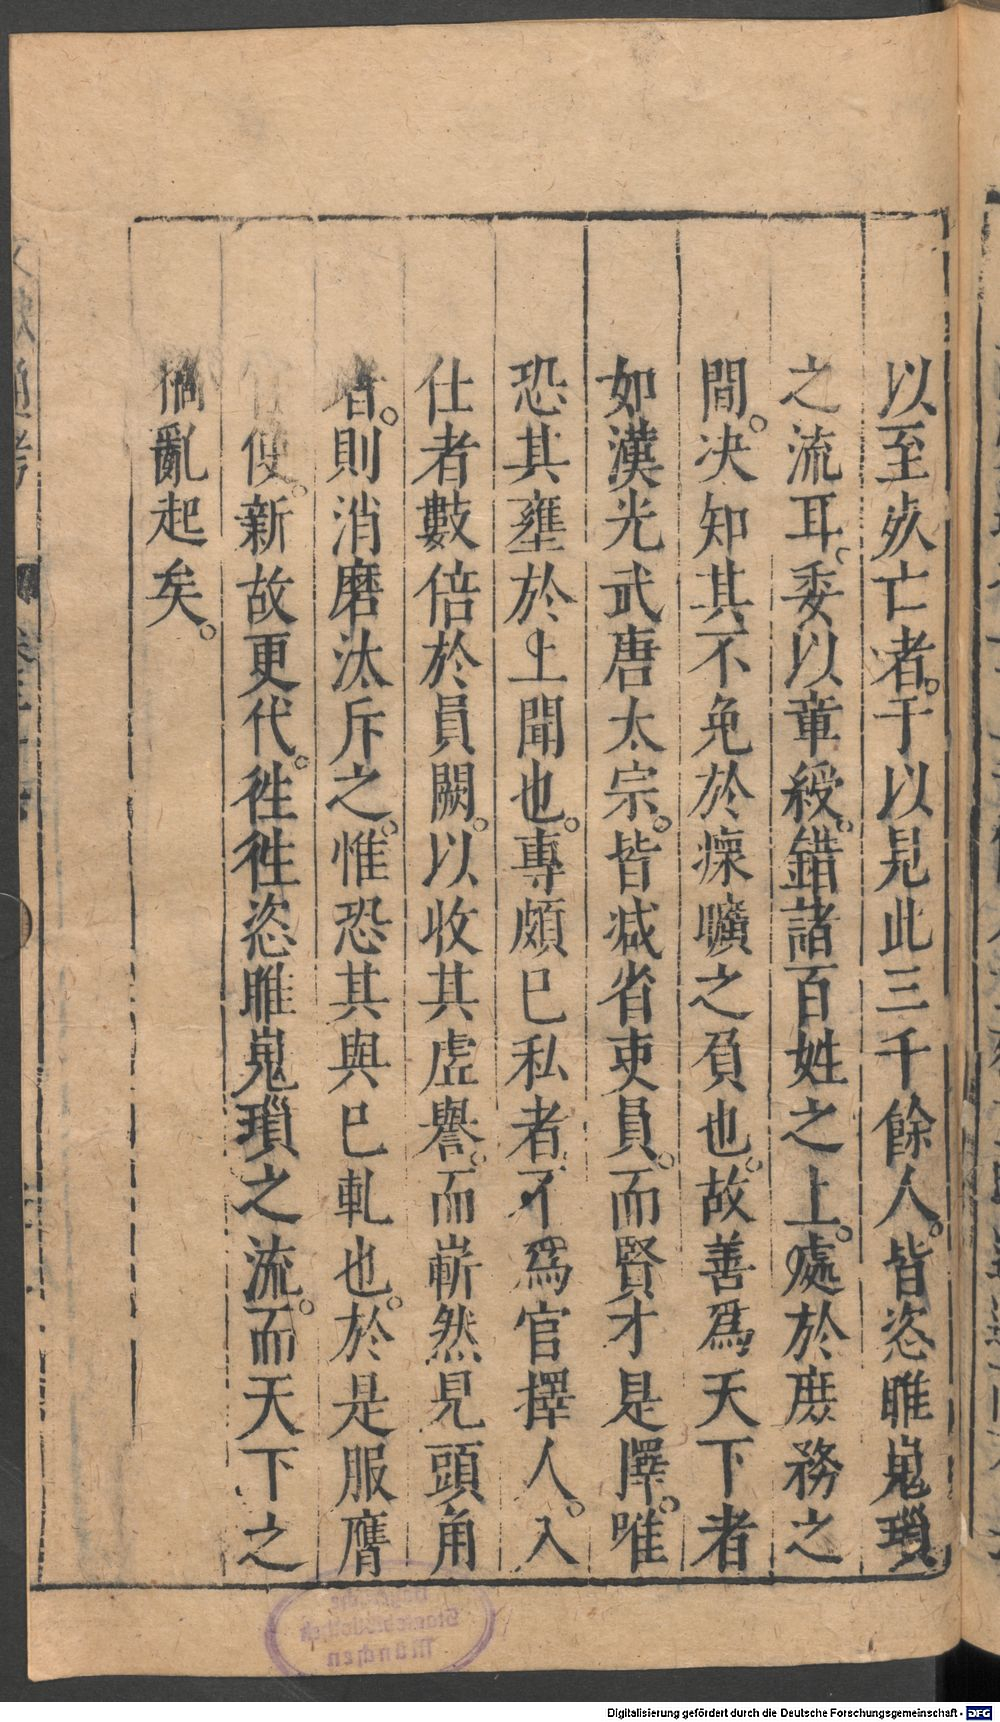 以至敗亡者。于以見此三千餘人。皆恣睢嵬瑣
之流耳。委以章綬。錯諸百姓之上。處於庶務之
間。決知其不免於瘝曠之負也。故善爲天下者
如漢光武唐太宗。皆减省吏員。而賢才是擇。唯
恐其壅於上聞也。專頗己私者。不爲官擇人。入
仕者數倍於員闕。以收其虛譽。而嶄然見頭角
者。則消磨汰斥之。惟恐其與己軋也。於是服膺
官使。新故更代。徃徃恣睢嵬瑣之流。而天下之
禍亂起矣。
Bayerische
Staatsbibliothek
München
Digitalisierung gefördert durch die Deutsche Forschungsgemeinschaft - DFG